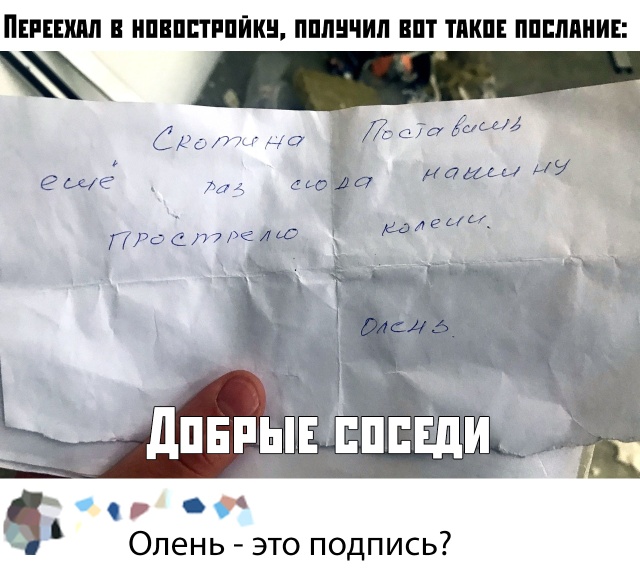 Переехал в новостройку, получил вот такое послание:
Скотина Поставишь
ещё раз сюда машину
Прострелю колени.
Олень.
Добрые соседи
Олень - это подпись?